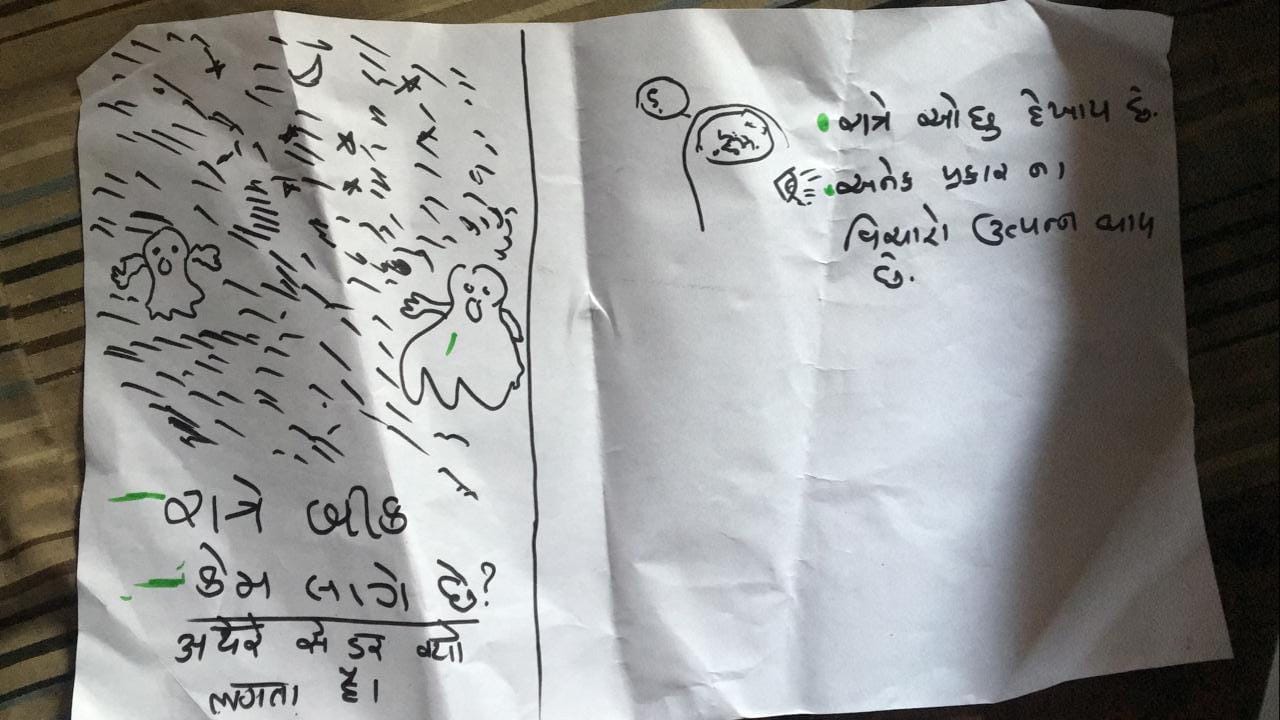 રાત્રે બીક
કેમ લાગે છે?
अंधेरे से डर क्यों
लगता है।
રાત્રે ઓછુ દેખાય છે.
અનેક પ્રકાર ના
વિચારો ઉત્પન્ન થાય
છે.